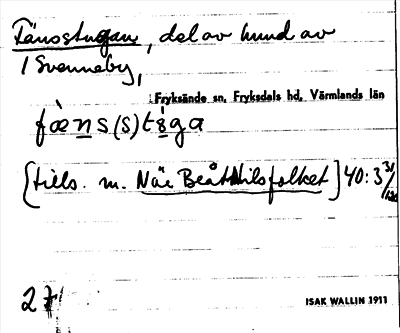 Fänsstugan, del av hund av
i Svenneby,
Fryksände sn, Fryksdals hd, Värmlands län
fæ̀ns(s)tɨga
[tills. m. När Beåt Nilsfolket] 40: 3 3/
27
ISAK WALLIN 1911